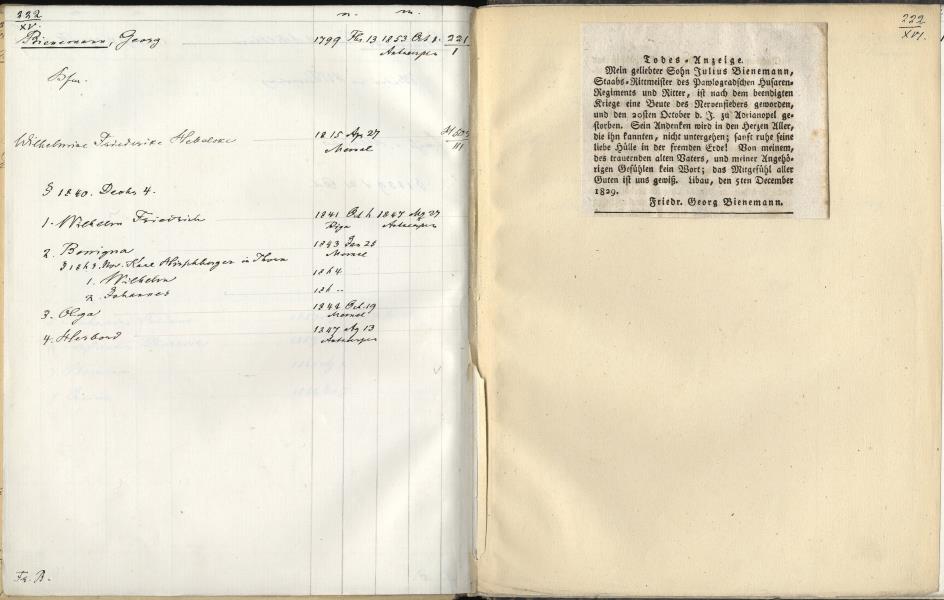 222
XV.
n. m.
Bienemann, Georg 1799 Fbr 13 1853 Oct 1. 221
Antwerpen I
Bfm.
Wilhelmine Friederike 1815 Ap 27
Memel III
§ 1840. Decbr 4.
1. Wilhelm Friedrich 1841 Oct 1847 Ag 27
Riga Antwerpen
2. Benigna 1843 Jan 28
Memel
Nov. Karl Hirschberger in Thorn
1. Wilhelm 186
2. Johannes 18
3. Olga 1844 Oct. 19
Memel
4. Herbord 1847 Ag 13
Antwerpen
Fr. B.
222
XVI.
Todes-Anzeige.
Mein geliebter Sohn Julius Bienemann,
Staabs-Rittmeister des Pawlogradschen Husaren-
Regiments und Ritter, ist nach dem beendigten
Kriege eine Beute des Nervenfiebers geworden,
und den 20sten October d. J. zu Adrianopel ge-
storben. Sein Andenken wird in den Herzen Aller,
die ihn kannten, nicht untergehen; sanft ruhe seine
liebe Hülle in der fremden Erde! Von meinem,
des trauernden alten Vaters, und meiner Angehö-
rigen Gefühlen kein Wort; das Mitgefühl aller
Guten ist uns gewiß. Libau, den 5ten December
1829.
Friedr. Georg Bienemann.